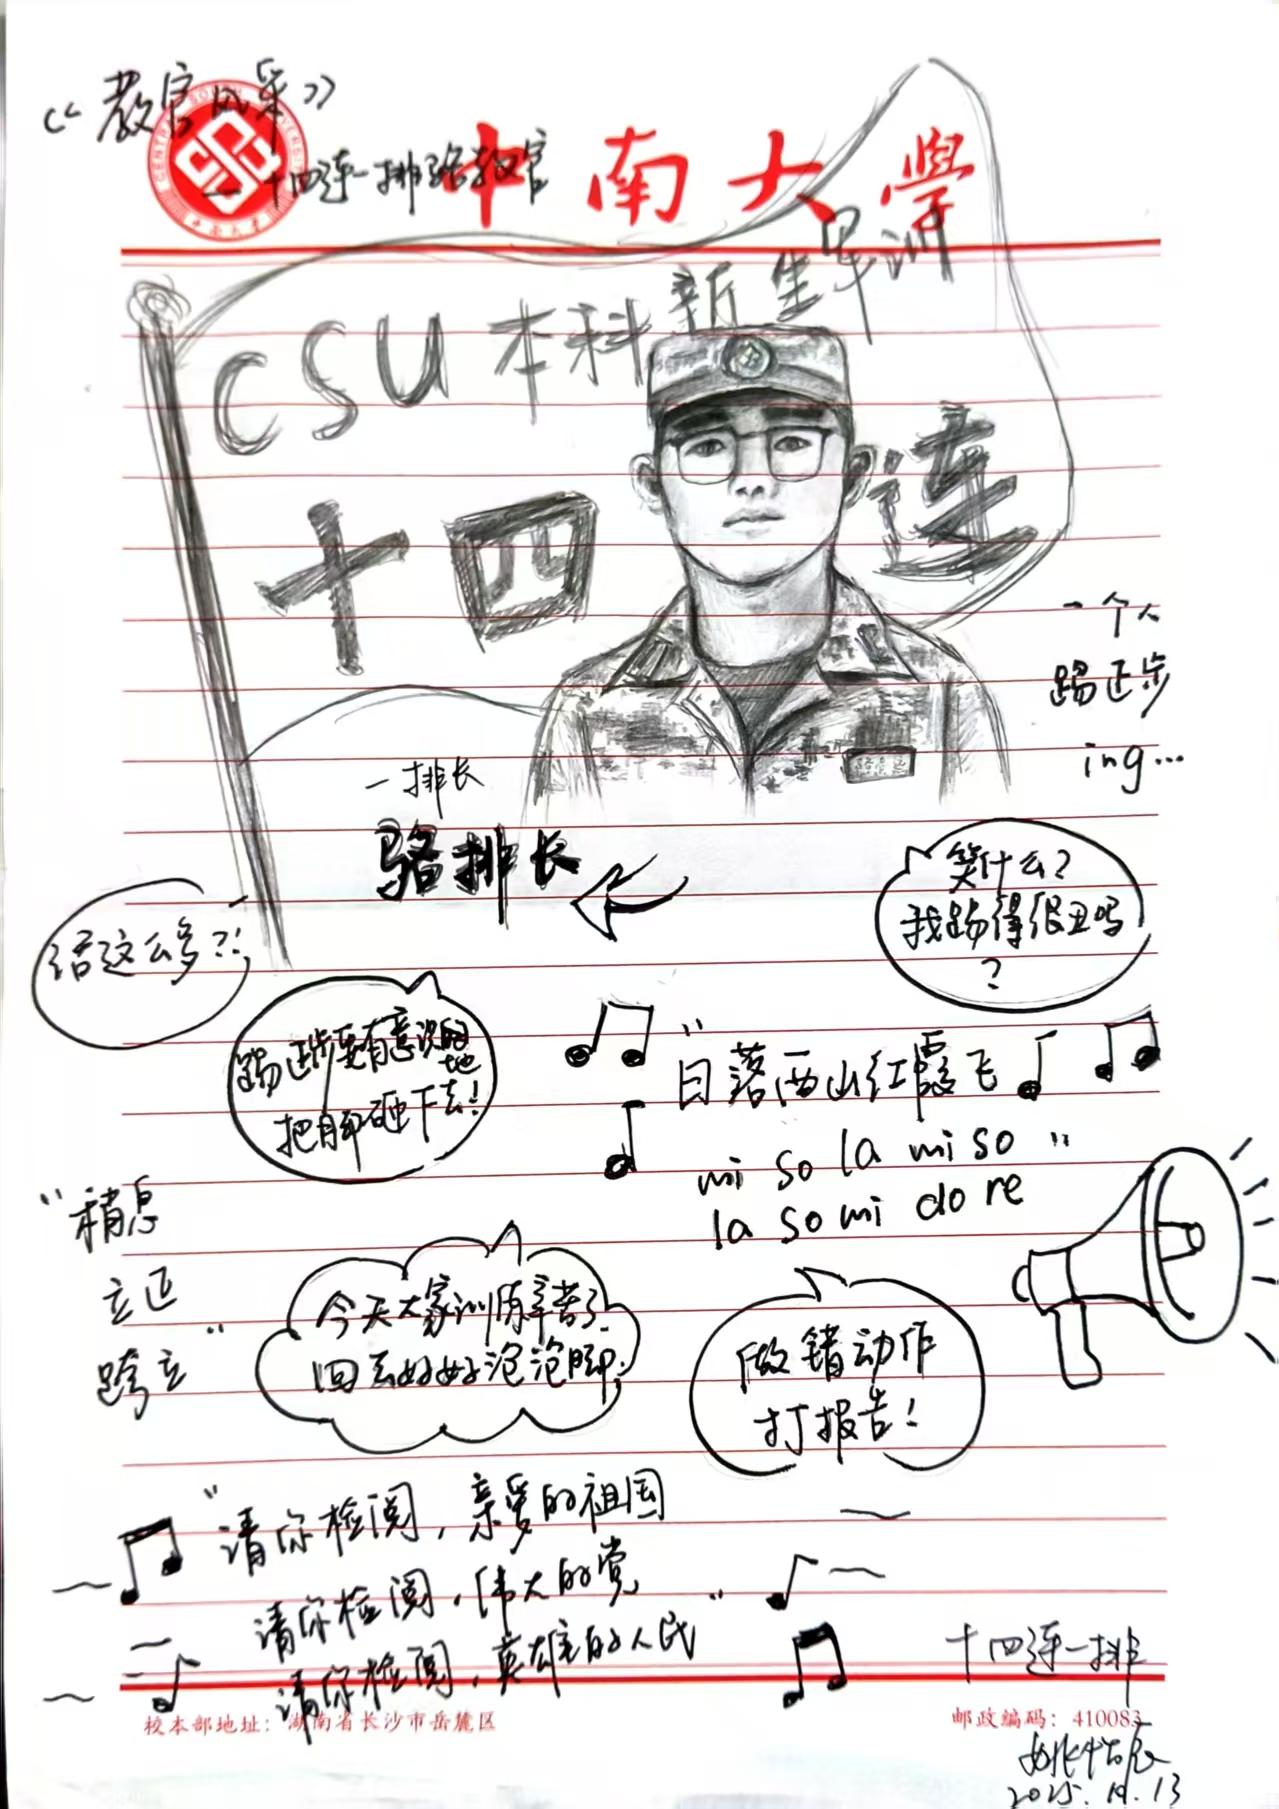 《教官风采》
中南大學
十四连一排骆教官
CSU本科新生军训
十四连
一个人
踢正步
ing...
一排长
骆排长
笑什么?
我踢得很丑吗
?
话这么多?!
踢正步要有意识地
把脚砸下去!
"日落西山红霞飞
mi so la mi so"
la so mi do re
"稍息
立正
跨立"
今天大家训练辛苦了.
回去好好泡泡脚;
做错动作
打报告!
"请你检阅,亲爱的祖国
请你检阅,伟大的党
请你检阅,英雄的人民"
十四连一排
校本部地址:湖南省长沙市岳麓区
邮政编码:410083
2025.10.13